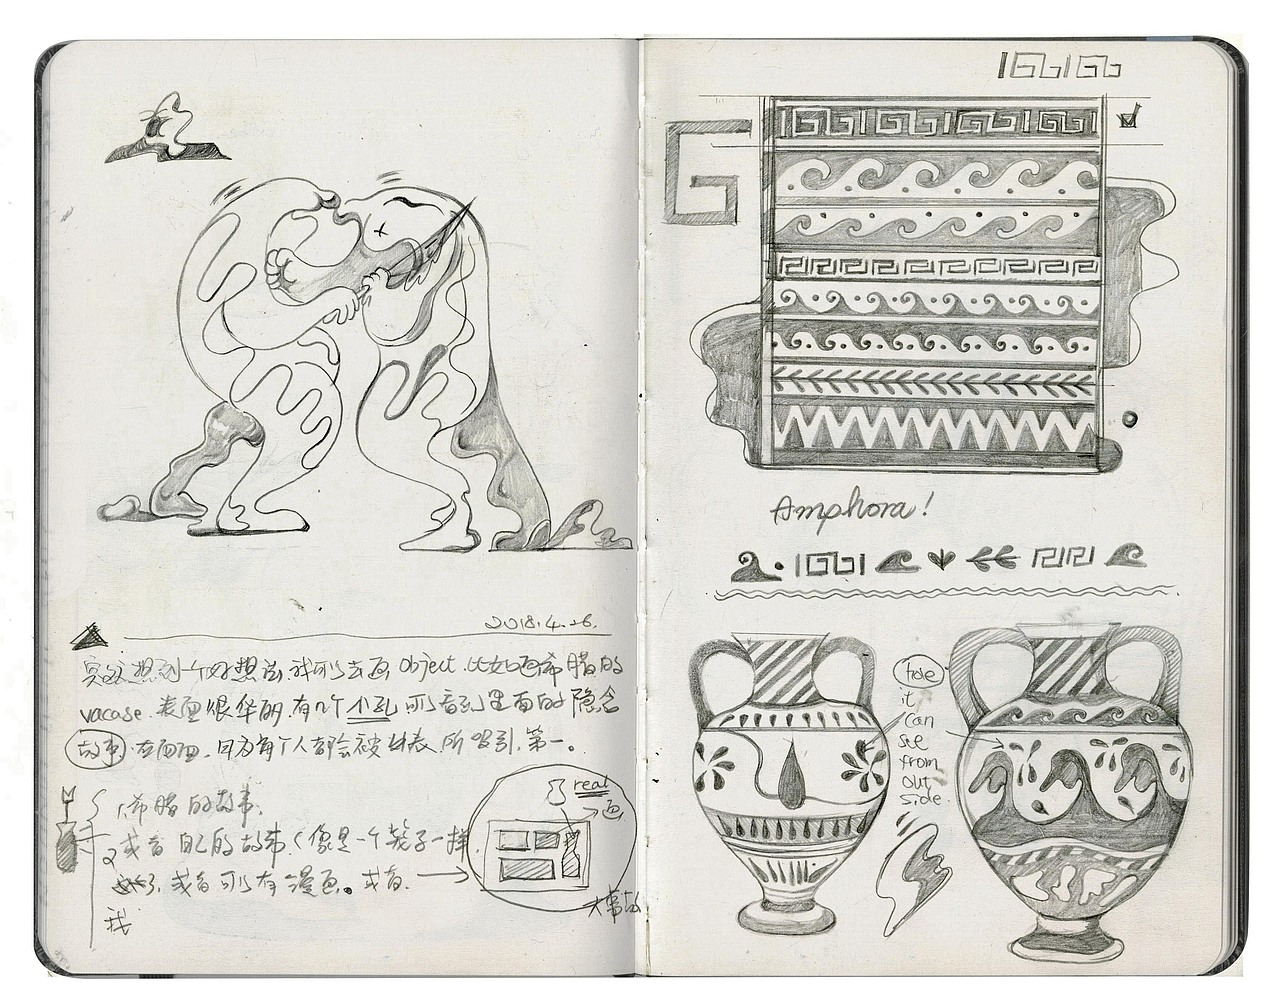 2018.4.26.
突然想到一个好想法,我可以去画 object.比如画希腊的
vacase.表面很华丽.有几个小孔可以看到里面的隐含
故事.在面.因为有个人都会被外表所吸引.第一。
1希腊的故事.
2或者自己的故事.(像是一个 子一样.
3.或者可以有漫画。或者.
我
real
画
大事故
Amphora!
hole
it
can
see
from
out
side.